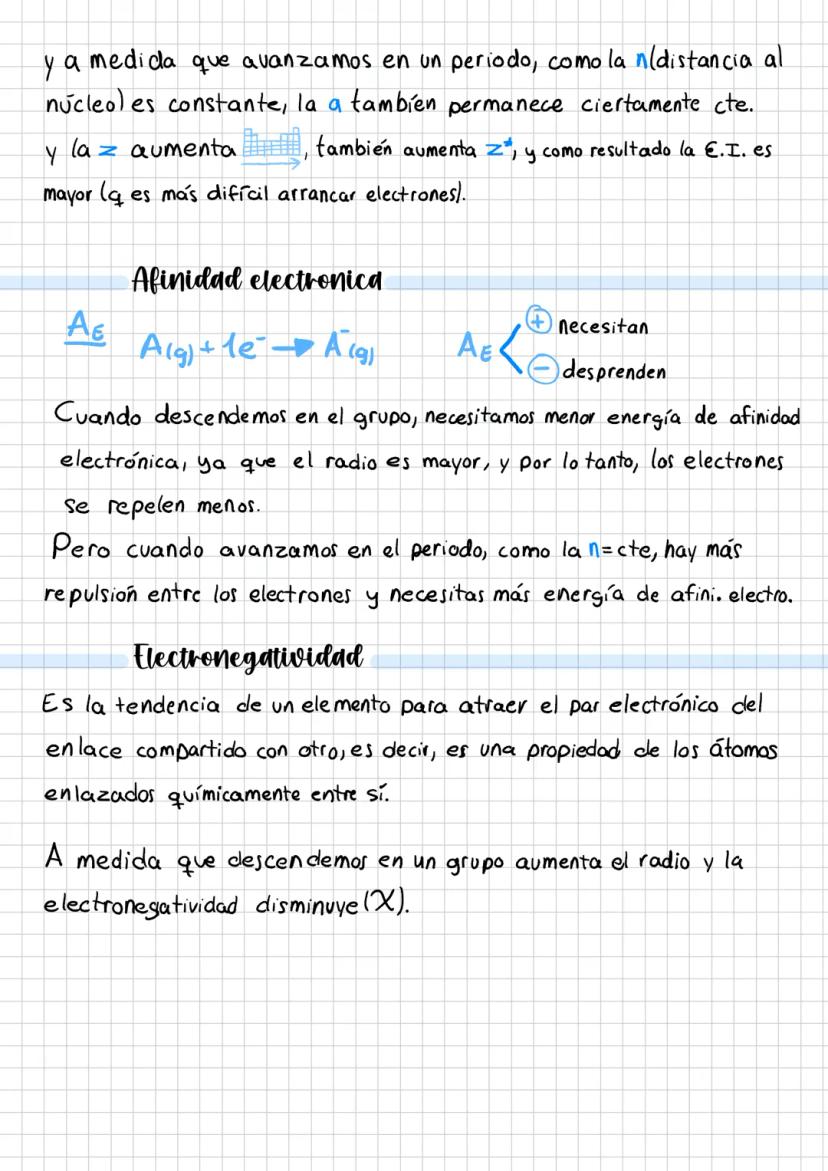 y a medida que avanzamos en un periodo, como la n(distancia al
núcleo) es constante, la a también permanece ciertamente cte.
y la z aumenta , también aumenta z*, y como resultado la E.I. es
mayor (q es más difícil arrancar electrones).
Afinidad electronica
AE A(g) + 1e⁻ → A⁻(g) AE
+ necesitan
- desprenden
Cuando descendemos en el grupo, necesitamos menor energía de afinidad
electrónica, ya que el radio es mayor, y por lo tanto, los electrones
se repelen menos.
Pero cuando avanzamos en el periodo, como la n=cte, hay más
repulsión entre los electrones y necesitas más energía de afini. electro.
Electronegatividad
Es la tendencia de un elemento para atraer el par electrónico del
enlace compartido con otro, es decir, es una propiedad de los átomos
enlazados químicamente entre sí.
A medida que descendemos en un grupo aumenta el radio y la
electronegatividad disminuye (X).